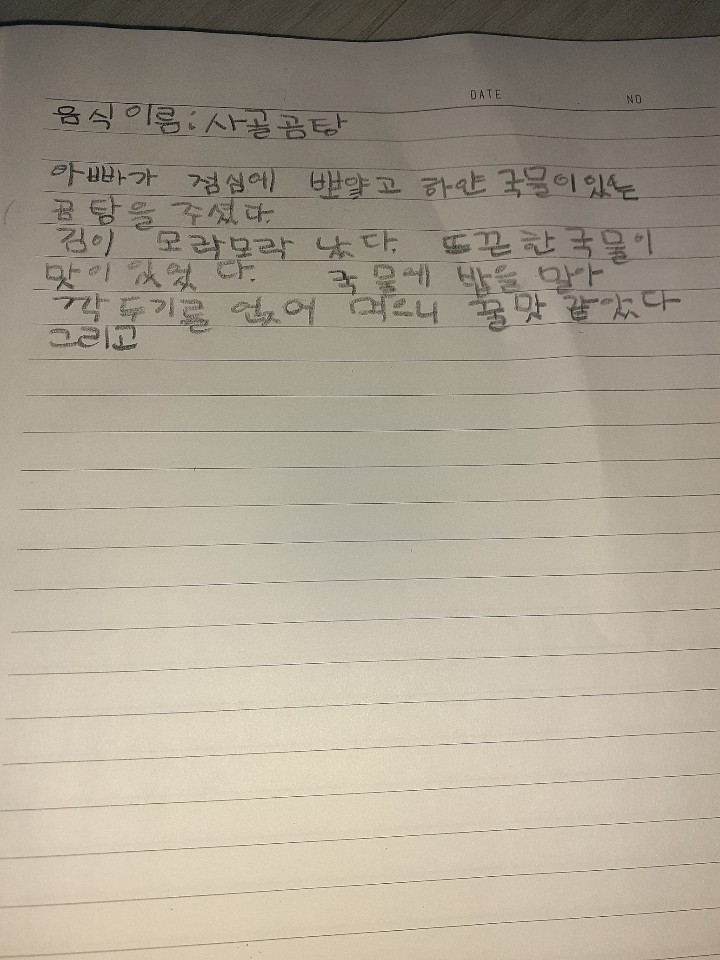 DATE
NO
음식이름:사골곰탕
아빠가 점심에 뽀얗고 하얀 국물이있는
곰탕을 주셨다.
김이 모락모락 났다. 뜨끈한국물이
맛이있었다. 국물에 밥을 말아
깍두기를 얹어 먹으니 꿀맛 같았다
그리고